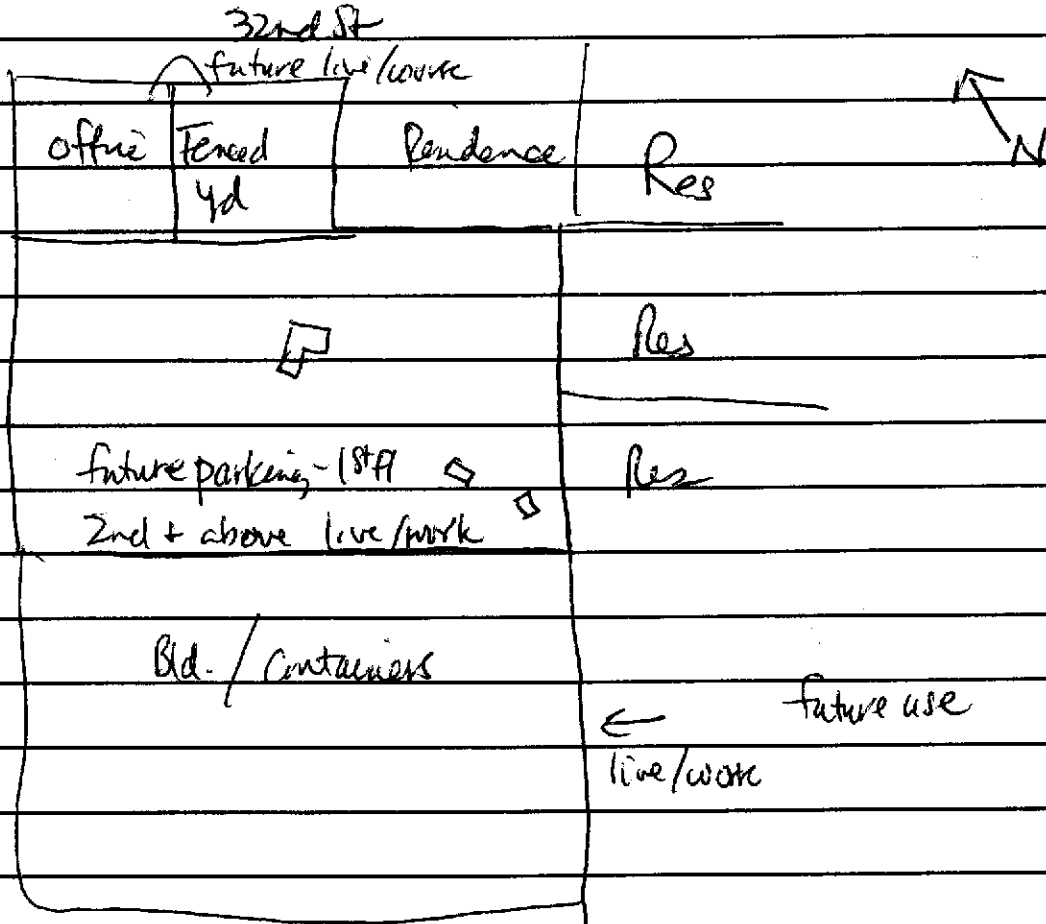 32nd St
future live/work
N
Office Fenced Residence Res
yd
Res
future parking - 1st fl Res
2nd + above live/work
Bld. / Containers
← future use
live/work